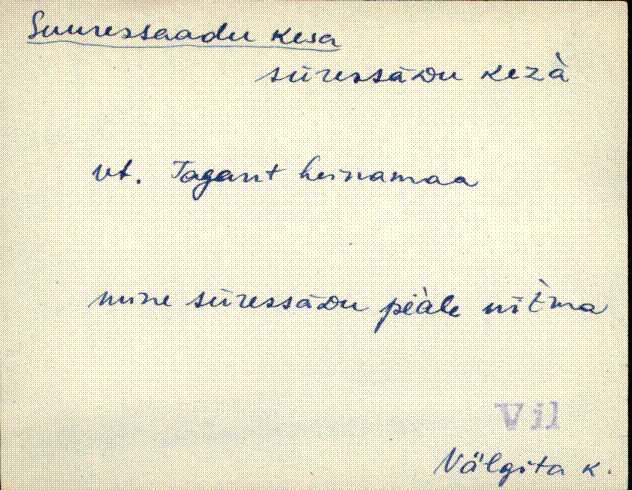 Suuressaadu kesa
sūressāDu kezà
vt. Tagant heinamaa
mine sūressāDu pèàle nìtma
Vil
Välgita k.